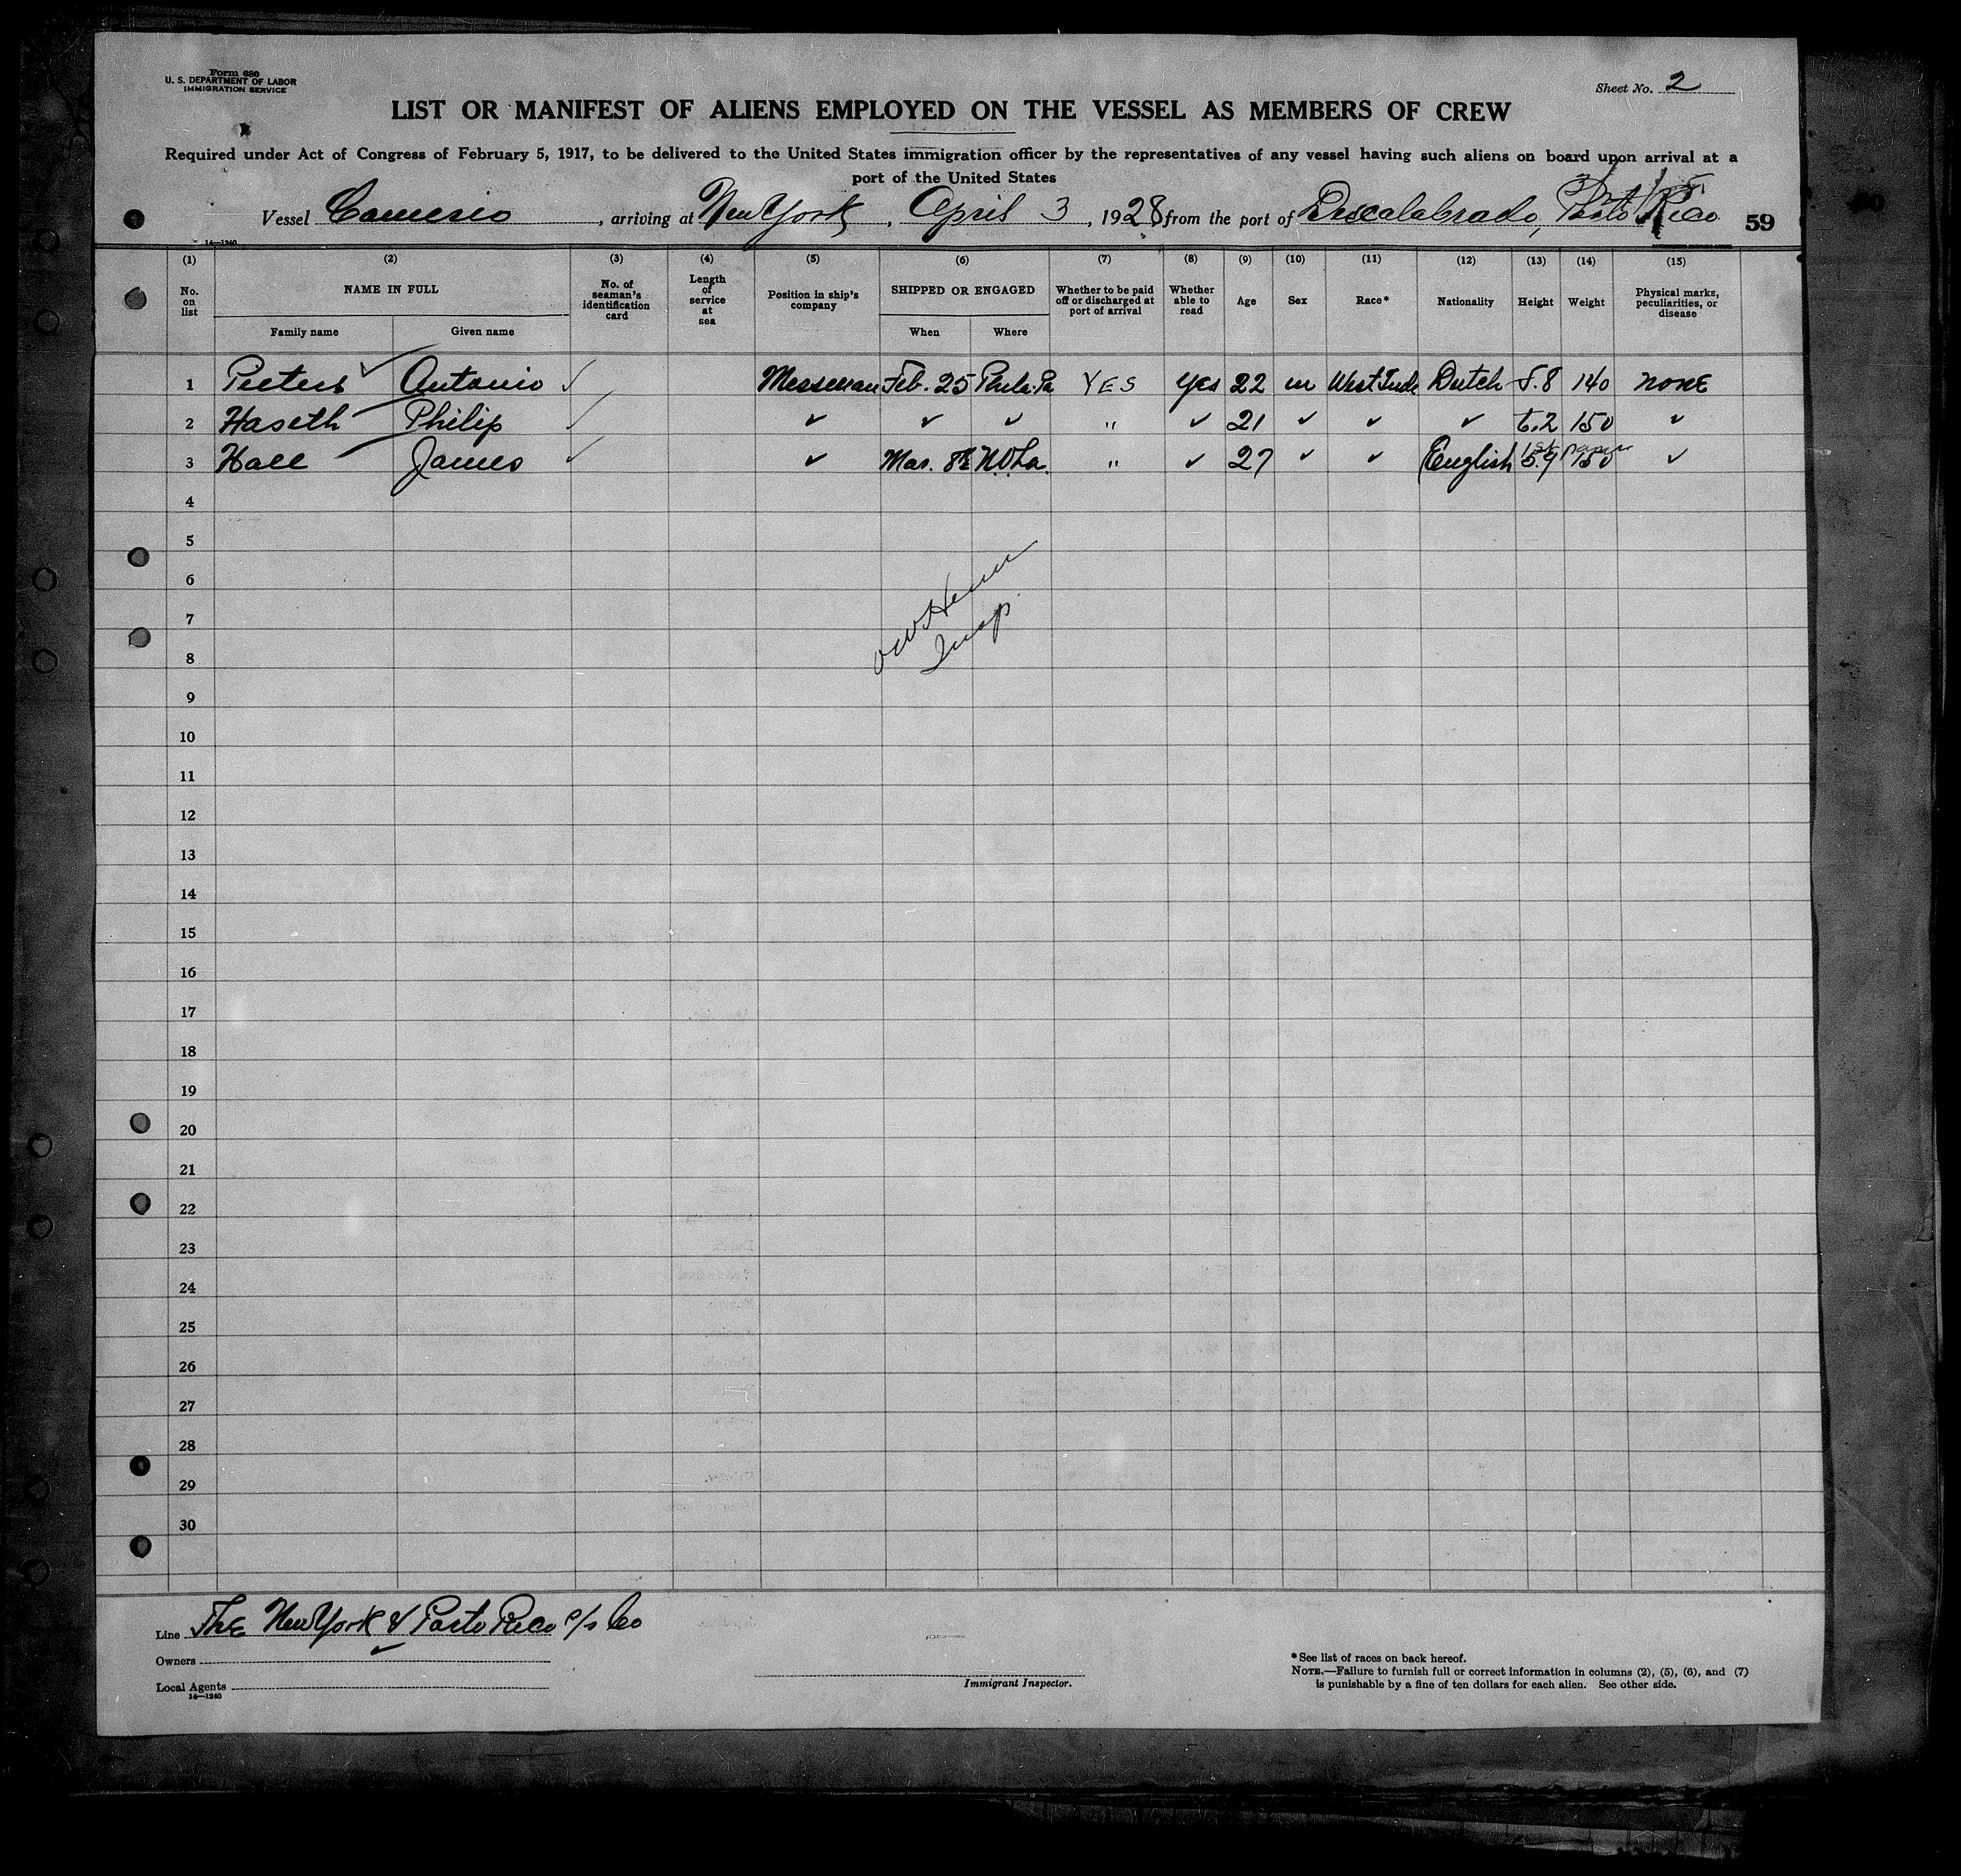 Form 680
U. S. DEPARTMENT OF LABOR
IMMIGRATION SERVICE
Sheet No. 2
LIST OR MANIFEST OF ALIENS EMPLOYED ON THE VESSEL AS MEMBERS OF CREW
Required under Act of Congress of February 5, 1917, to be delivered to the United States immigration officer by the representatives of any vessel having such aliens on board upon arrival at a
port of the United States
Vessel Comerio, arriving at New York, April 3, 1928 from the port of Descalabrado, Porto Rico 59
14—1240
(1) (2) (3) (4) (5) (6) (7) (8) (9) (10) (11) (12) (13) (14) (15)
No. on list NAME IN FULL No. of seaman's identification card Length of service at sea Position in ship's company SHIPPED OR ENGAGED Whether to be paid off or discharged at port of arrival Whether able to read Age Sex Race* Nationality Height Weight Physical marks, peculiarities, or disease
Family name Given name When Where
1 Peeters ✓ Antonio ✓ Messman Feb. 25 Phila. Pa YES Yes 22 m West Ind. Dutch 5.8 140 NONE
2 Haseth Philip ✓ ✓ ✓ ✓ " ✓ 21 ✓ ✓ ✓ 6.2 150 ✓
3 Hall James ✓ ✓ Mar. 8th N.O. La. " ✓ 27 ✓ ✓ English 5.9 150 ✓
1st papers
4
5
6
7
8
Insp.
9
10
11
12
13
14
15
16
17
18
19
20
21
22
23
24
25
26
27
28
29
30
Line The New York & Porto Rico S/S Co
Owners ✓
Local Agents
14—1240
Immigrant Inspector.
*See list of races on back hereof.
NOTE.—Failure to furnish full or correct information in columns (2), (5), (6), and (7)
is punishable by a fine of ten dollars for each alien. See other side.